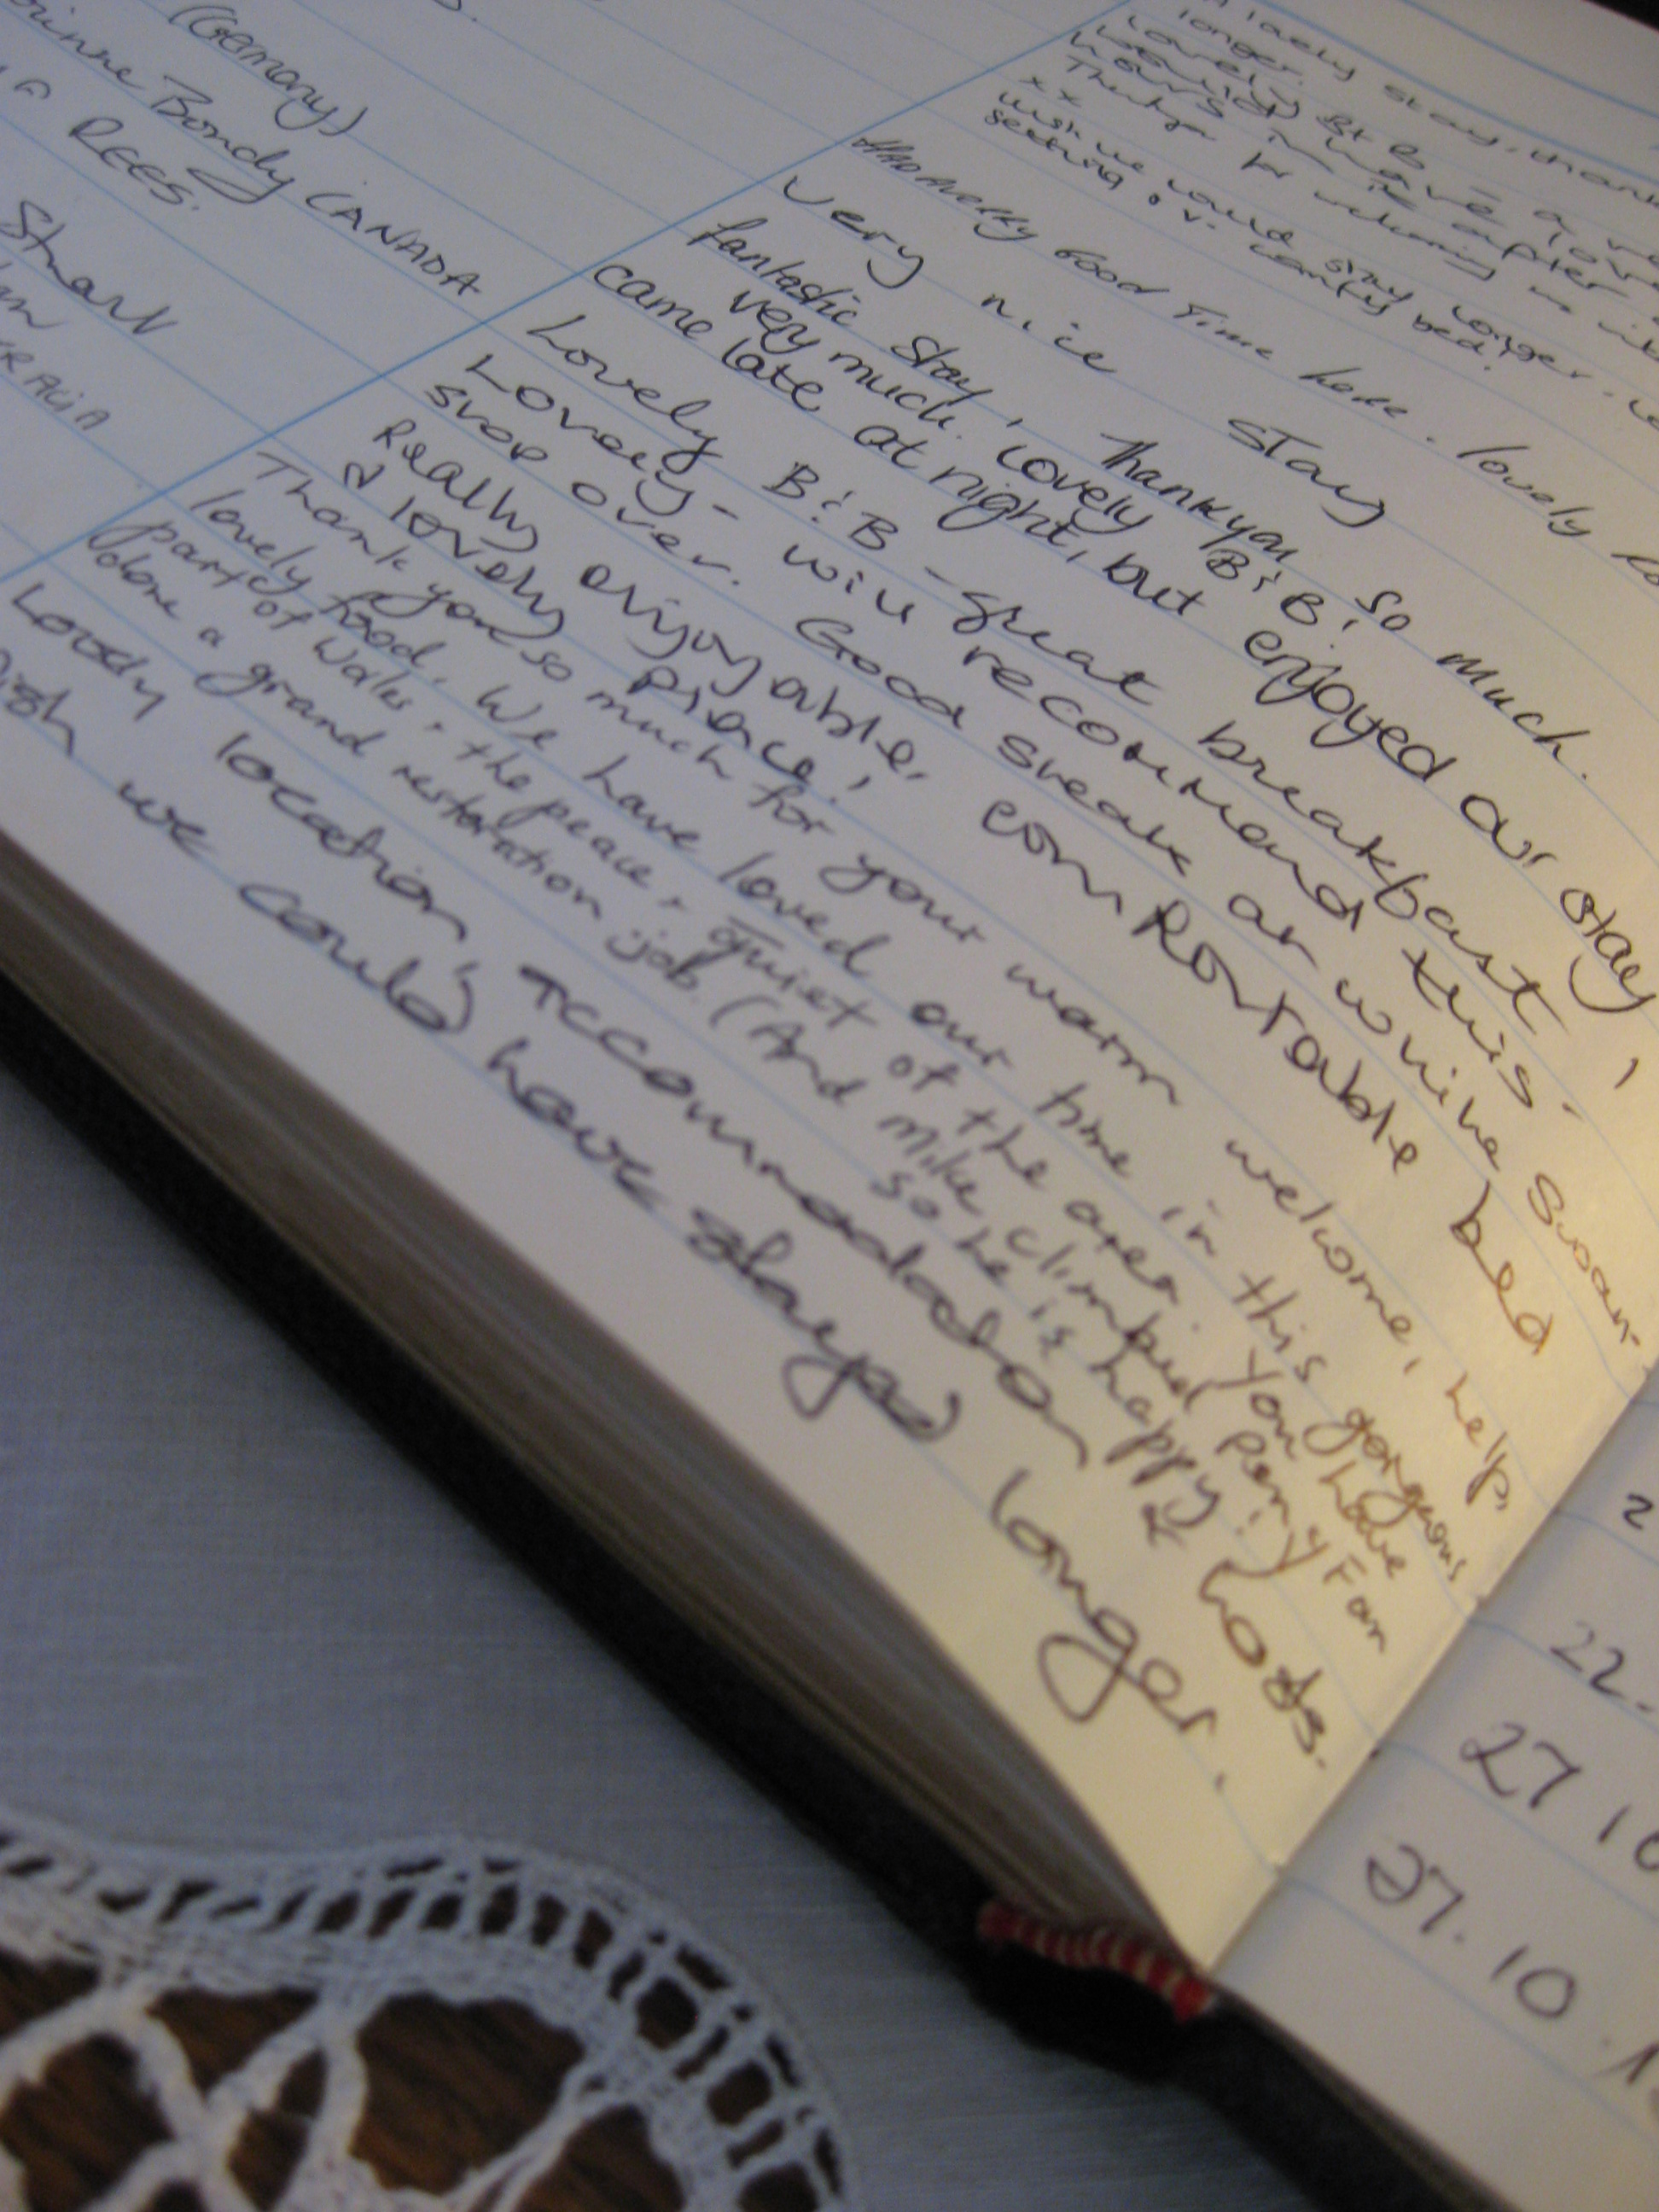 (Germany)
Bondy CANADA
REES.
Stuart
lovely stay,
longer.
Lovely B+B
hours in the
Thankyou for welcoming us
xx
wish we could stay longer.
seeing
comfy bed!
Had a really Good Time here. lovely
Very nice stay
fantastic stay, Thankyou so much.
very much. Lovely B&B!
came late at night, but enjoyed our stay
Lovely B&B - great breakfast!
Lovely - will recommend this.
stop over. Good steak at white Swan.
Really enjoyable, comfortable bed
& lovely place!
Thank you so much for your warm welcome, help,
lovely food. We have loved our time in this gorgeous
part of Wales, the peace & quiet of the area. You have
done a grand restoration job. (And Mike climbed Pen y Fan
so he is happy!)
Lovely location, accommodation & hosts.
Wish we could have stayed longer.
2
22.
27 10
27.10.1